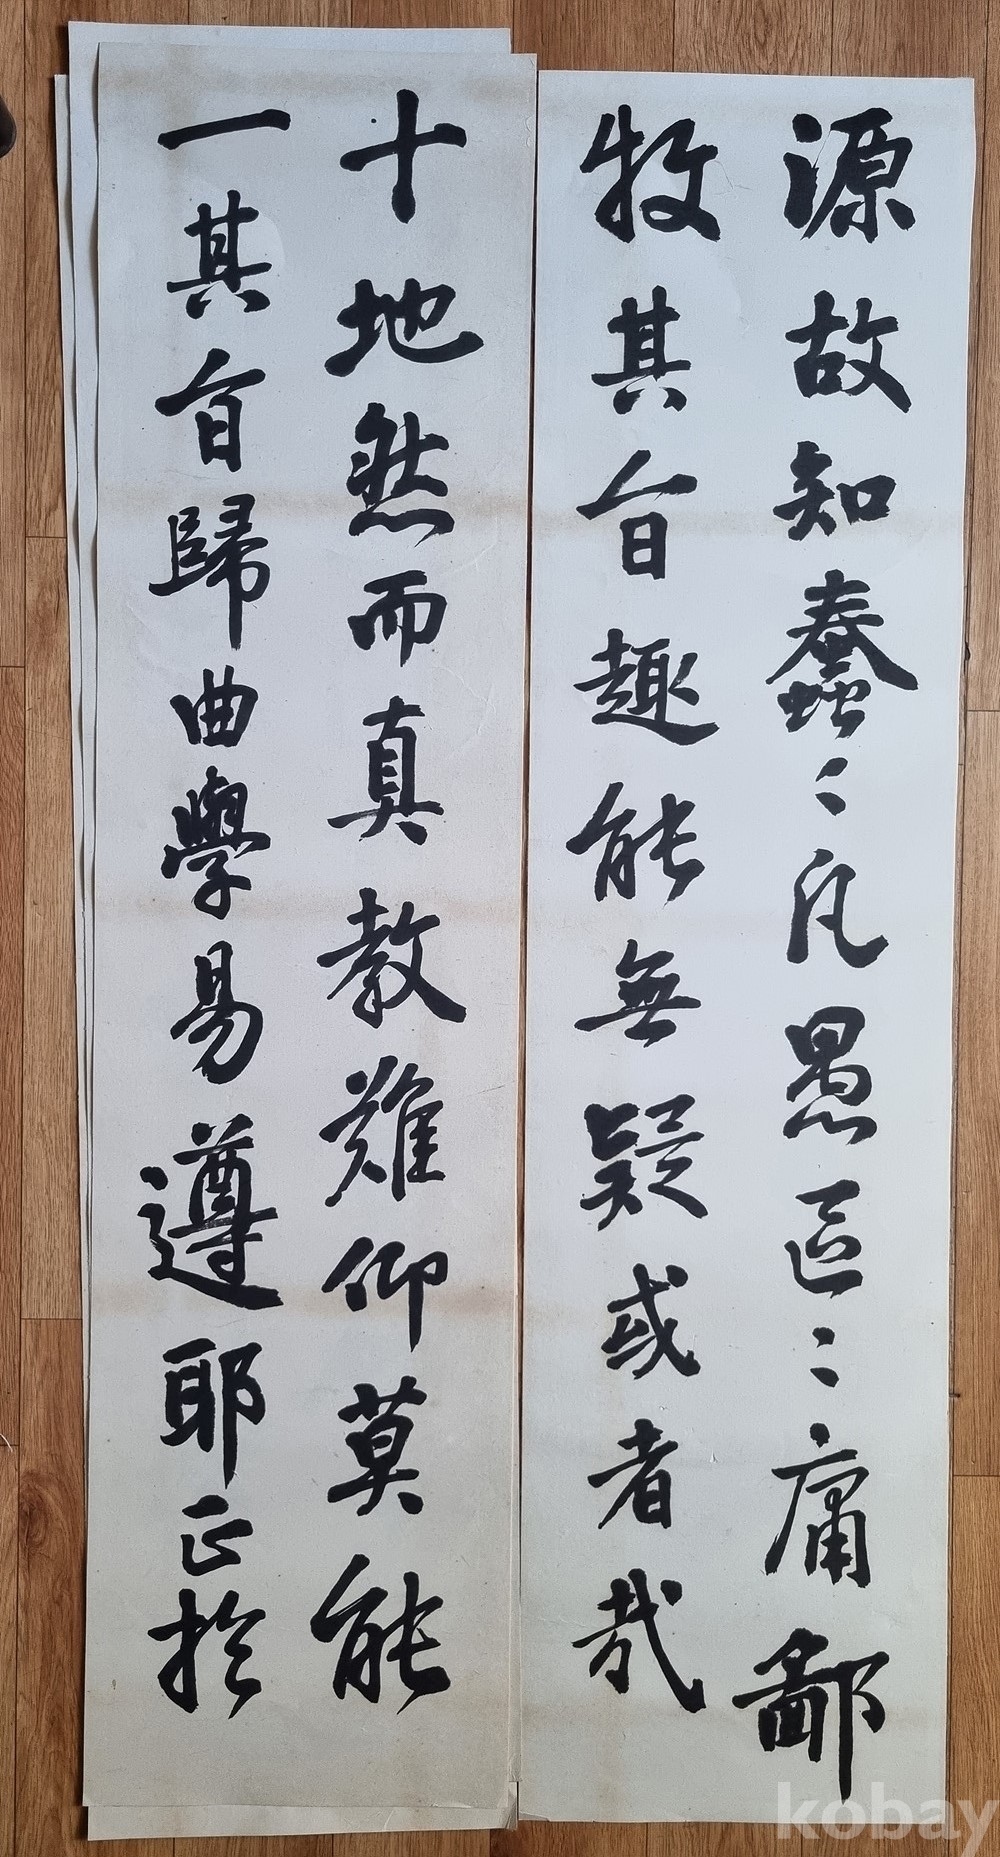 源故知蠢〻凡愚區〻庸鄙
投其旨趣能無疑或者哉
十地然而真教難仰莫能
一其旨歸曲學易遵耶正於
kobay